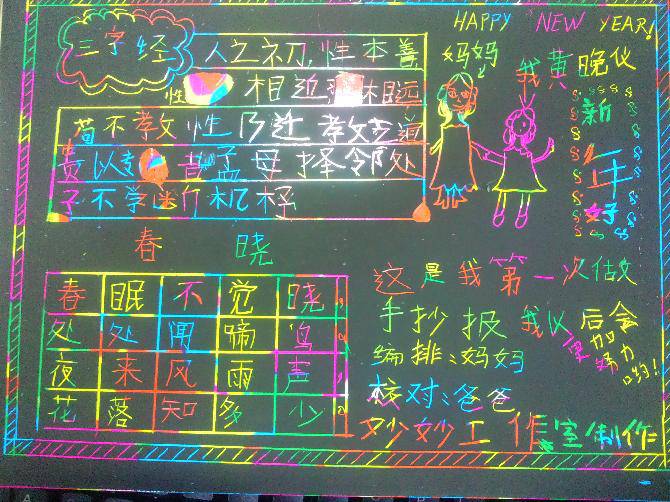 HAPPY NEW YEAR!
三字经
人之初,性本善
性相近习相远
苟不教性乃迁教之道
贵以专昔孟母择邻处
子不学断机杼
妈妈
我黄晚仪
新
年
好
春晓
春眠不觉晓,
处处闻啼鸟。
夜来风雨声,
花落知多少。
这是我第一次做
手抄报我以后会
更加努力哟!
编排:妈妈
核对:爸爸
妙妙工作室制作